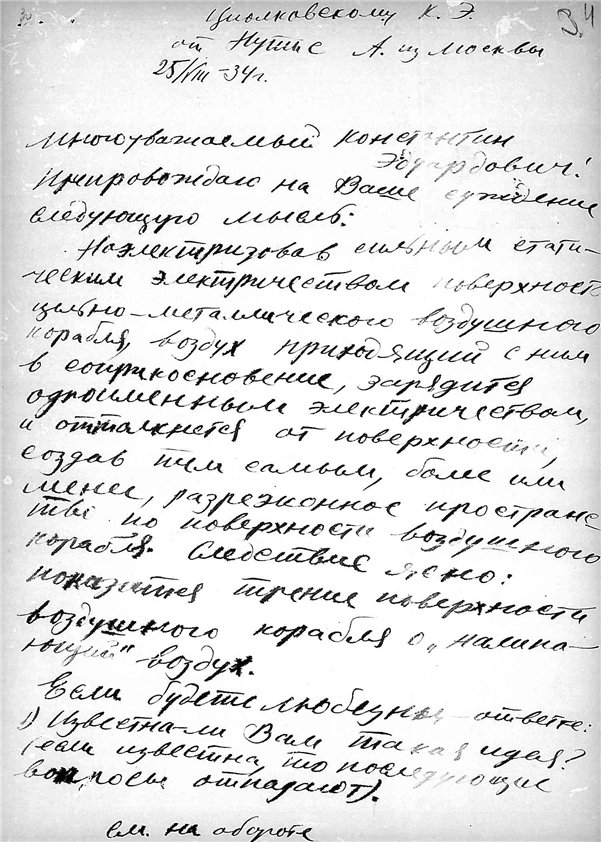 Циолковскому К. Э.
от Нутис А. из Москвы
25/VIII-34 г.
Многоуважаемый Константин
Эдуардович!
Препровождаю на Ваше суждение
следующую мысль:
Наэлектризовав сильным стати-
ческим электричеством поверхность
цельно-металлического воздушного
корабля, воздух приходящий с ним
в соприкосновение, зарядится
одноименным электричеством,
и оттолкнется от поверхности,
создав тем самым, более или
менее, разреженное пространс
тво по поверхности воздушного
корабля. Следствие ясно:
понизится трение поверхности
воздушного корабля о „налипа-
ющий" воздух.
Если будете любезны - ответьте:
1) Известна-ли Вам такая идея?
(если известна, то последующие
вопросы отпадают).
см. на обороте